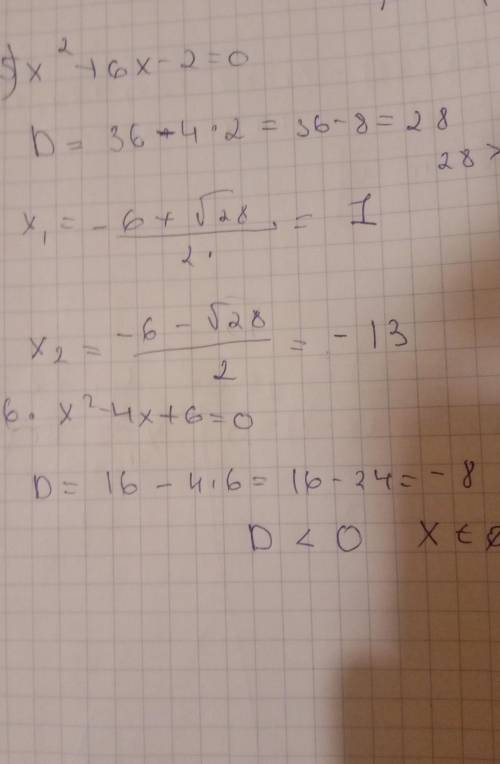 5) x² + 6x - 2 = 0
D = 36 - 4 · 2 = 36 - 8 = 28
28 >
x₁ = - 6 + √28 / 2 = 1
x₂ = -6 - √28 / 2 = - 13
6. x² - 4x + 6 = 0
D = 16 - 4 · 6 = 16 - 24 = - 8
D < 0 x ∈ ∅